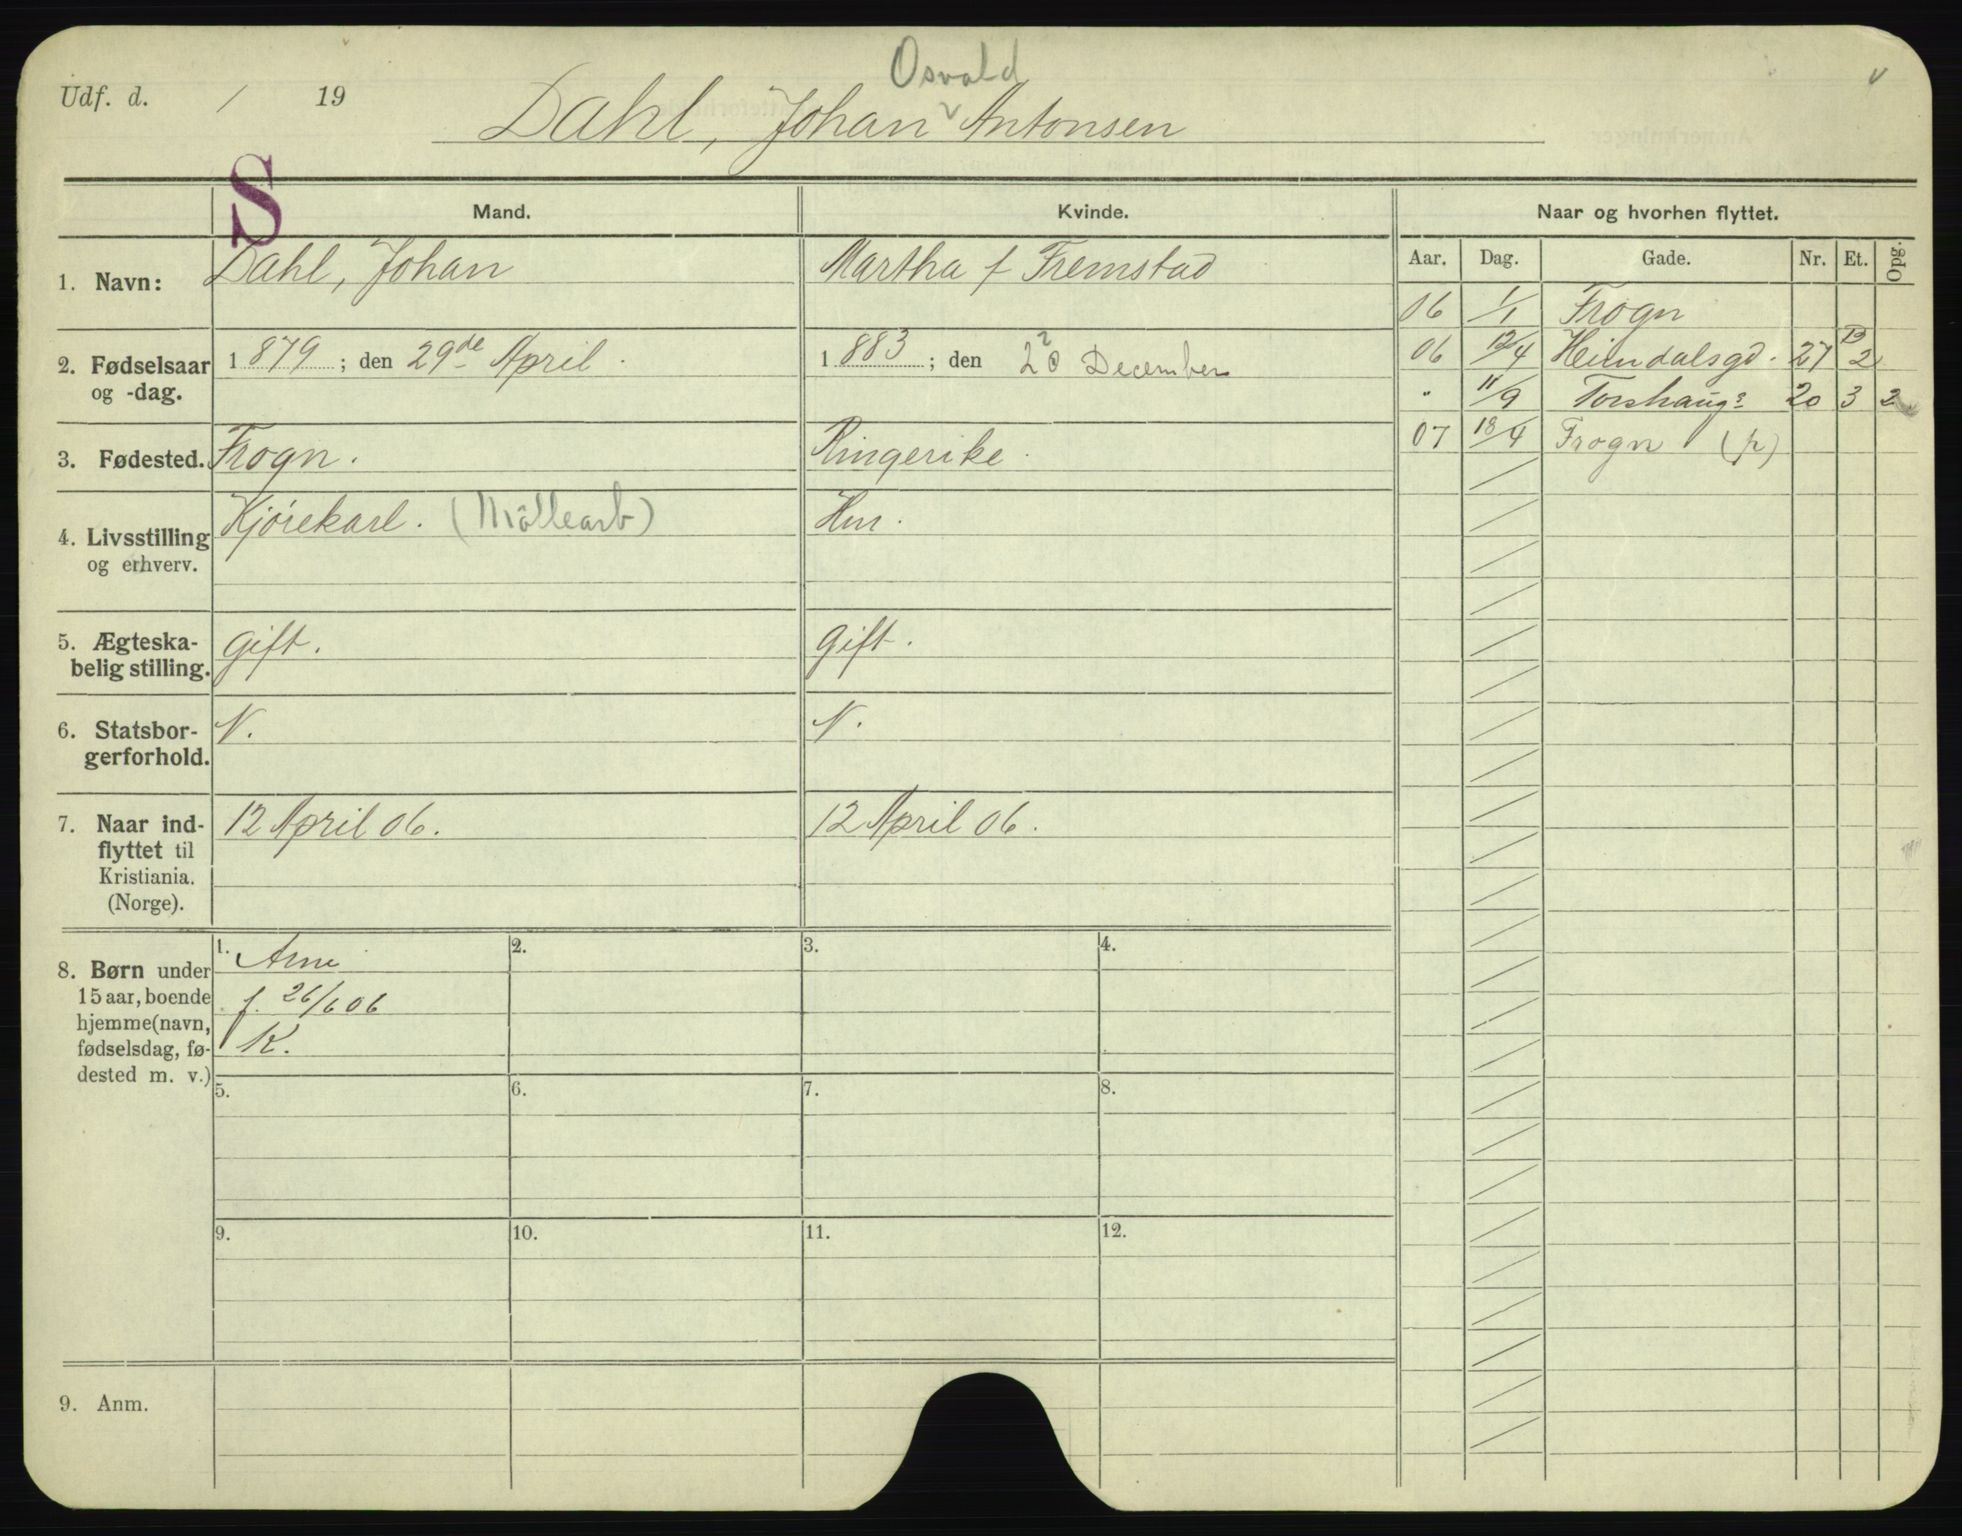 Osvald
Udf. d. / 19
Dahl, Johan Antonsen
S
Mand. Kvinde. Naar og hvorhen flyttet.
Aar. Dag. Gade. Nr. Et. Opg.
1. Navn: Dahl, Johan Martha f Fremstad
06 1/1 Frogn
2. Fødselsaar og -dag. 1879; den 29de April. 1883; den December
06 12/4 Heimdalsgd. 27 2
" 11/9 Torshaugs 20 3 2
07 18/4 Frogn (fr)
3. Fødested. Frogn. Ringerike
4. Livsstilling og erhverv. Kjørekarl. (Møllearb) Hur.
5. Ægteska-
belig stilling. gift. gift.
6. Statsbor-
gerforhold. N. N.
7. Naar ind-
flyttet til
Kristiania.
(Norge). 12 April 06. 12 April 06.
8. Børn under
15 aar, boende
hjemme (navn,
fødselsdag, fø-
dested m. v.)
1. Arne
f. 26/6 06
K.
2. 3. 4.
5. 6. 7. 8.
9. 10. 11. 12.
9. Anm.